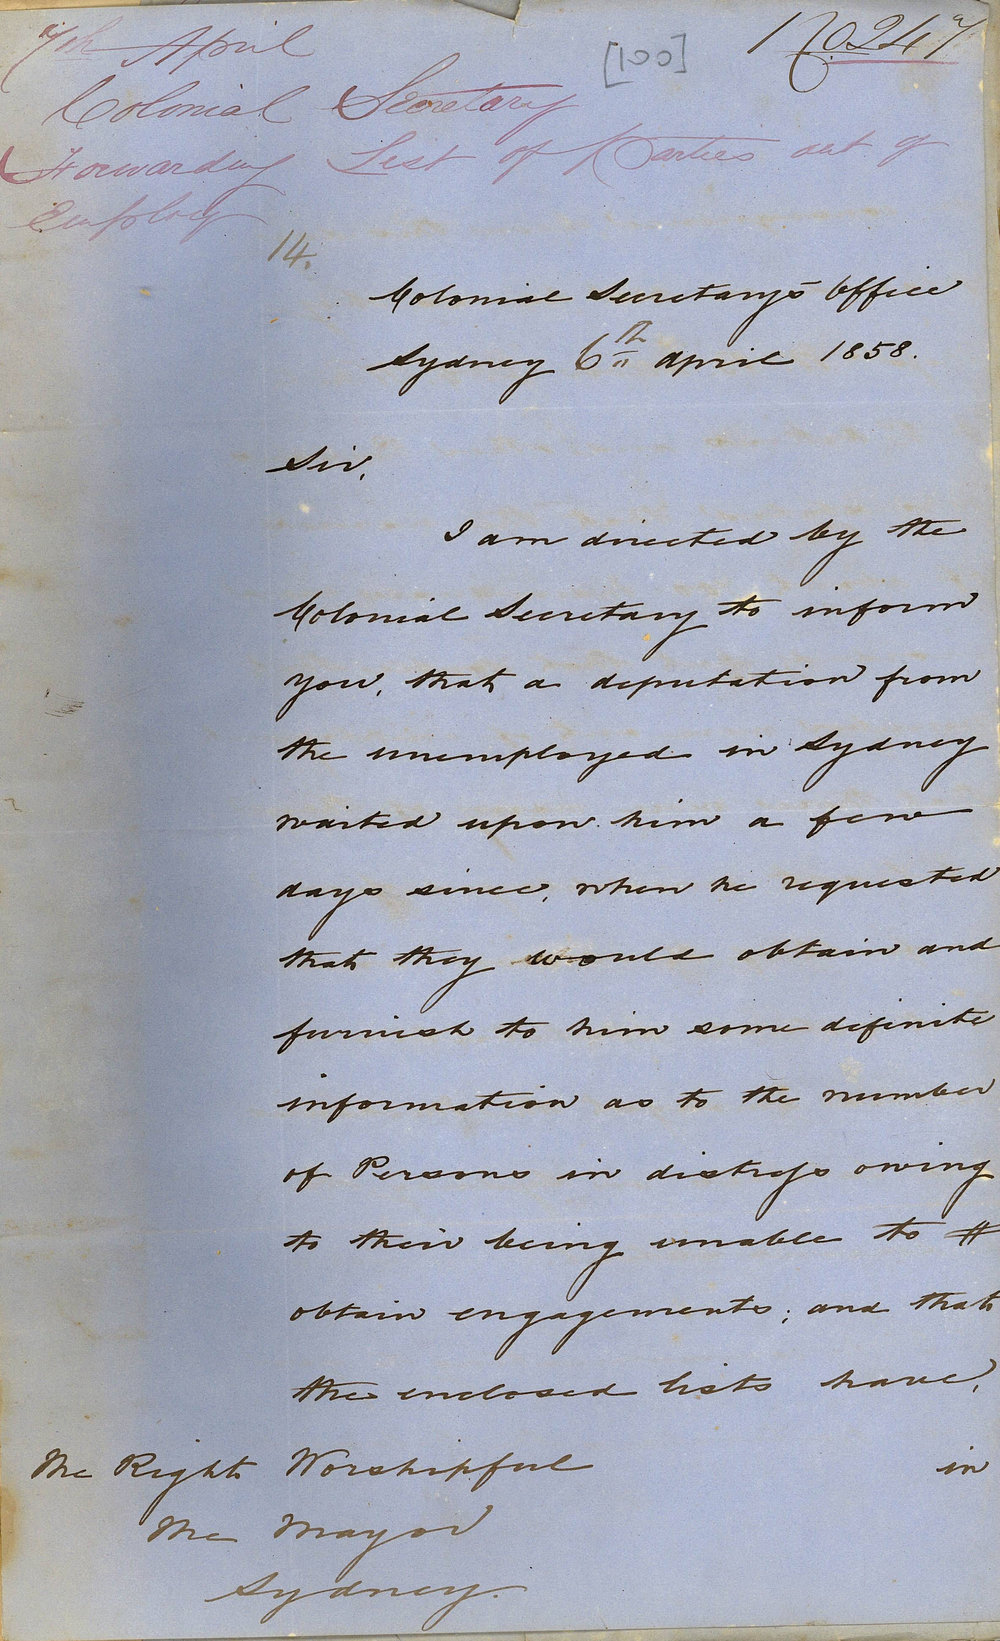 7th April
[100]
No 247
Colonial Secretary
Forwarding List of Parties out of
Employ
14.
Colonial Secretary's Office
Sydney 6th April 1858.
Sir,
I am directed by the
Colonial Secretary to inform
you, that a deputation from
the unemployed in Sydney
waited upon him a few
days since, when he requested
that they would obtain and
furnish to him some definite
information as to the number
of Persons in distress owing
to their being unable to
obtain engagements; and that
the enclosed lists have,
in
The Right Worshipful
The Mayor
Sydney.